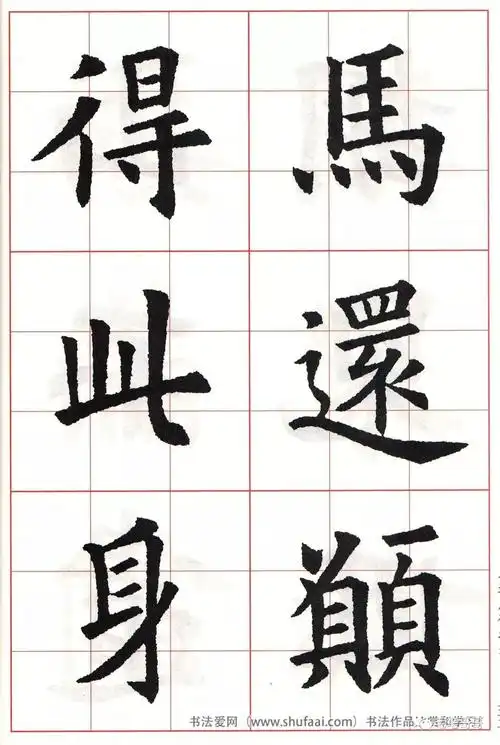 馬還
得此身
书法爱网（www.shufaai.com）书法作品欣赏和学习